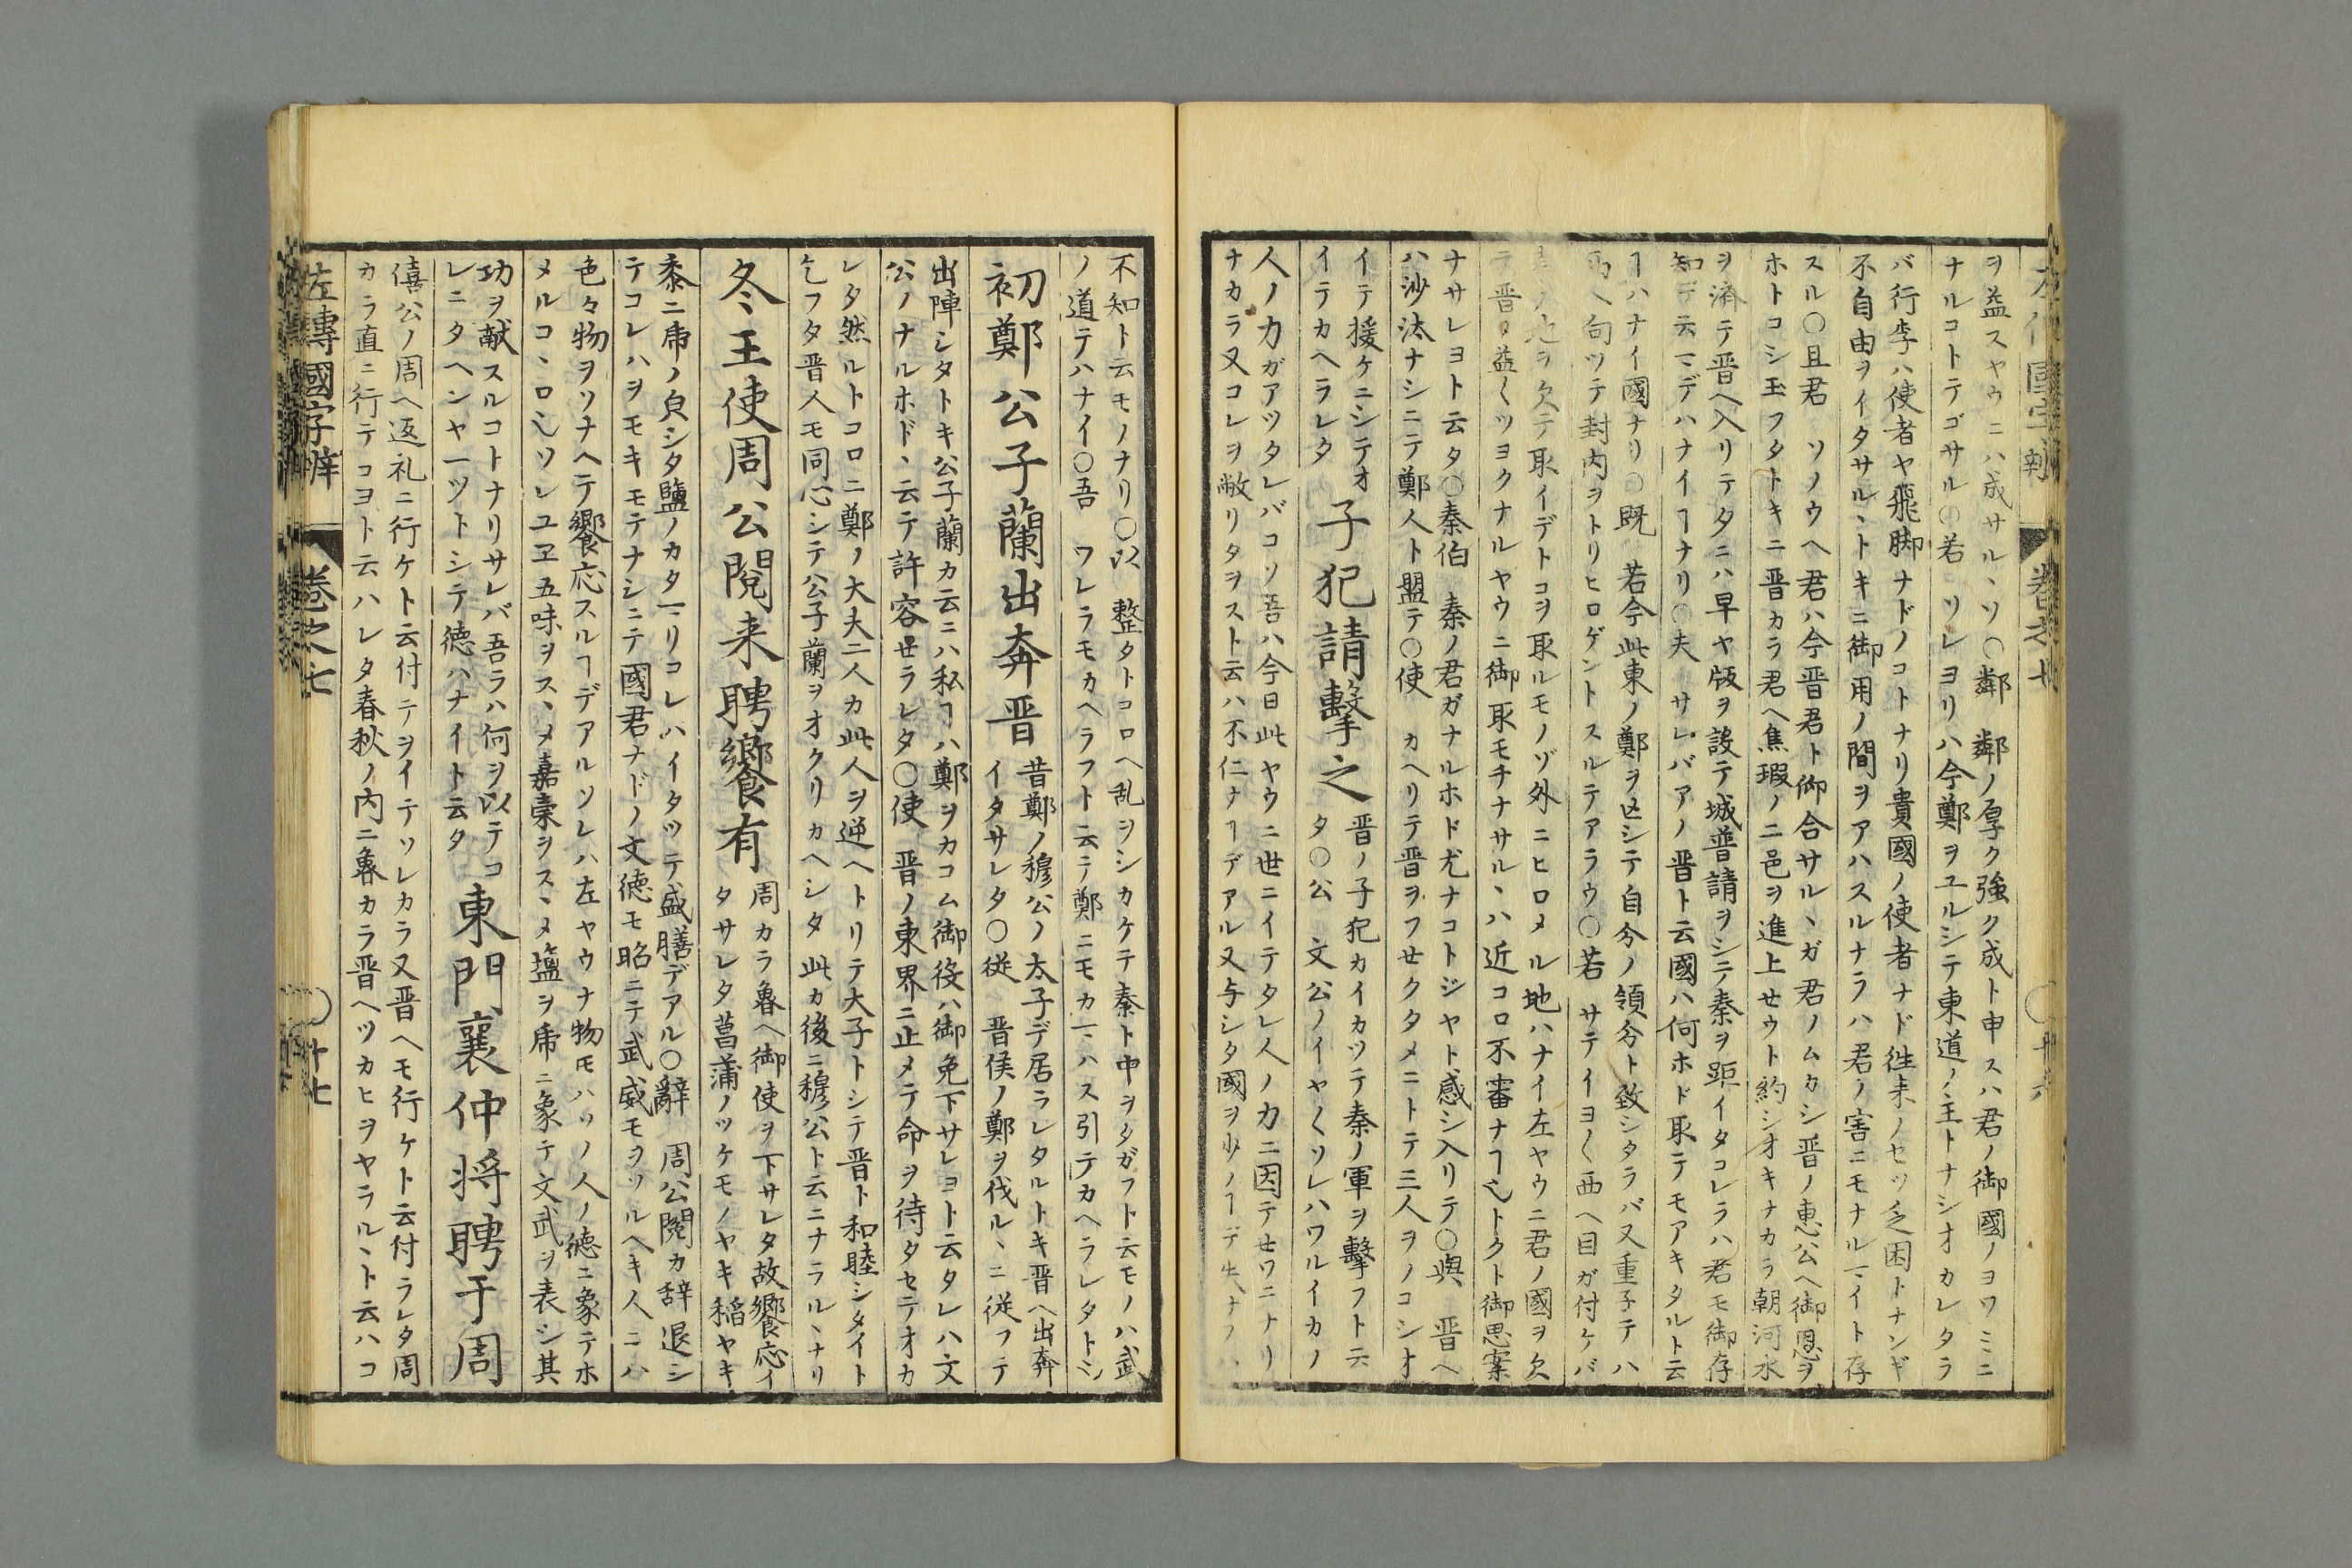 左傳國字辨
卷之七
ヲ益スヤウニハ成サルヽソ○鄰　鄰ノ厚ク強ク成ト申スハ君ノ御國ノヨワミニ
ナルコトテゴサル○若　ソレヨリハ今鄭ヲユルシテ東道ノ主トナシオカレタラ
バ行李ハ使者ヤ飛脚ナドノコトナリ貴國ノ使者ナド往来ノセツ乏困トナンギ
不自由ヲイタサルヽトキニ御用ノ間ヲアハスルナラハ君ノ害ニモナルマイト存
スル○且君　ソノウヘ君ハ今晋君ト御合サルヽガ君ノムカシ晋ノ恵公ヘ御恩ヲ
ホトコシ玉フタトキニ晋カラ君ヘ焦瑕ノ二邑ヲ進上セウト約シオキナカラ朝河水
ヲ済テ晋ヘ入リテタニハ早ヤ版ヲ設テ城普請ヲシテ秦ヲ距イタコレラハ君モ御存
知デ云マデハナイヿナリ○夫　サレバアノ晋ト云國ハ何ホド取テモアキタルト云
ヿハナイ國ナリ○既　若今此東ノ鄭ヲ亡シテ自今ノ領分ト致シタラバ又重子テハ
西ヘ向ツテ封内ヲトリヒロゲントスルテアラウ○若　サテイヨ〱西ヘ目ガ付ケバ
ノ地ヲ欠テ取イデトコヲ取ルモノゾ外ニヒロメル地ハナイ左ヤウニ君ノ國ヲ欠
テ晋ヲ益〱ツヨクナルヤウニ御取モチナサルヽハ近コロ不審ナヿ乀トクト御思案
ナサレヨト云タ○秦伯　秦ノ君ガナルホド尤ナコトジヤト感シ入リテ○與　晋ヘ
ハ沙汰ナシニテ鄭人ト盟テ○使　カヘリテ晋ヲフセクタメニトテ三人ヲノコシオ
イテ援ケニシテオ
イテカヘラレタ
子犯請擊之
晋ノ子犯カイカツテ秦ノ軍ヲ擊フト云
タ○公　文公ノイヤ〱ソレハワルイカノ
人ノ力ガアツタレバコソ吾ハ今日此ヤウニ世ニイテタレ人ノ力ニ因テセワニナリ
ナカラ又コレヲ敝リタヲスト云ハ不仁ナヿデアル又与シタ國ヲ
不知ト云モノナリ○以　整タトコロヘ乱ヲシカケテ秦ト中ヲタガフト云モノハ武
ノ道テハナイ○吾　ワレラモカヘラフト云テ鄭ニモカマハス引テカヘラレタトシ
初鄭公子蘭出奔晋
昔鄭ノ穆公ノ太子デ居ラレタルトキ晋ヘ出奔
イタサレタ○従　晋侯ノ鄭ヲ伐ルヽニ従フテ
出陣シタトキ公子蘭カ云ニハ私ヿハ鄭ヲカコム御役ハ御免下サレヨト云タレハ文
公ノナルホドヽ云テ許容セラレタ○使　晋ノ東界ニ止メテ命ヲ待タセテオカ
レタ然ルトコロニ鄭ノ大夫二人カ此人ヲ逆ヘトリテ大子トシテ晋ト和睦シタイト
乞フタ晋人モ同心シテ公子蘭ヲオクリカヘシタ此カ後ニ穆公ト云ニナラルヽナリ
冬王使周公閲来聘饗有
周カラ魯ヘ御使ヲ下サレタ故饗応イ
タサレタ菖蒲ノツケモノヤキ稲ヤキ
黍ニ乕ノ皃シタ鹽ノカタマリコレハイタツテ盛膳デアル○辭　周公閲カ辞退シ
テコレハヲモキモテナシニテ國君ナドノ文徳モ昭ニテ武威モヲソルヘキ人ニハ
色々物ヲソナヘテ饗応スルヿデアルソレハ左ヤウナ物モハソノ人ノ徳ニ象テホ
メルコヽロ乀ソレユヱ五味ヲスヽメ嘉糓ヲスヽメ塩ヲ乕ニ象テ文武ヲ表シ其
功ヲ献スルコトナリサレバ吾ラハ何ヲ以テコ
レニタヘンヤ一ツトシテ徳ハナイト云タ
東門襄仲将聘于周
僖公ノ周ヘ返礼ニ行ケト云付テヲイテソレカラ又晋ヘモ行ケト云付ラレタ周
カラ直ニ行テコヨト云ハレタ春秋ノ内ニ魯カラ晋ヘツカヒヲヤラルヽト云ハコ
左傳國字辨
卷之七
十七